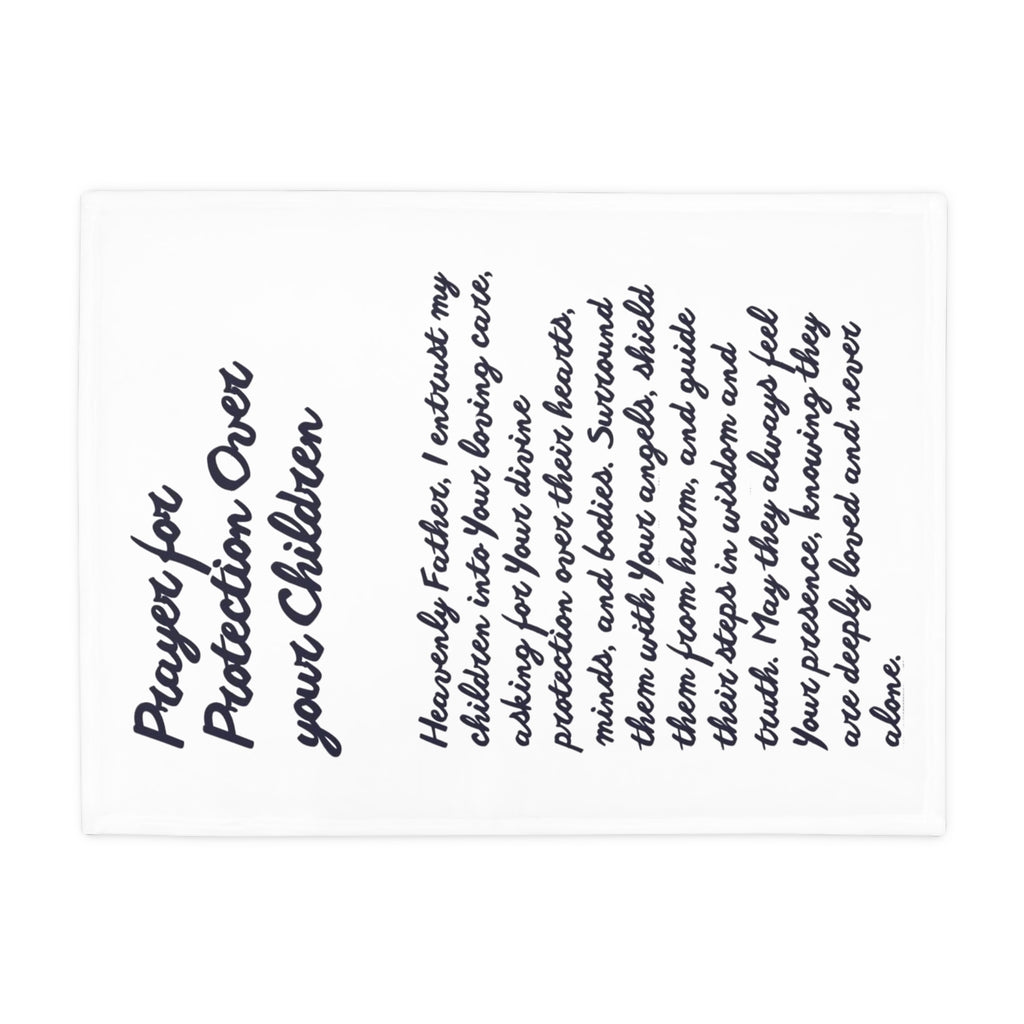 Prayer for
Protection Over
your Children
Heavenly Father, I entrust my
children into Your loving care,
asking for Your divine
protection over their hearts,
minds, and bodies. Surround
them with Your angels, shield
them from harm, and guide
their steps in wisdom and
truth. May they always feel
Your presence, knowing they
are deeply loved and never
alone.